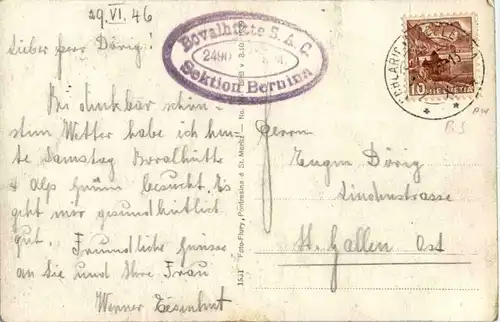 29. VI. 46
Lieber Herr Dörig!
Bei denkbar schön-
stem Wetter habe ich heu-
te Samstag Bovalhütte
& Alp Grüm besucht. Es
geht mir gesundheitlich
gut. Freundliche Grüsse
an Sie und Ihre Frau
Werner Eisenhut
Bovalhütte S. A. C.
2490
Sektion Bernina
1531 Foto-Flury, Pontresina & St. Moritz
10 HELVETIA
Herrn
Eugen Dörig
Lindenstrasse
St. Gallen Ost